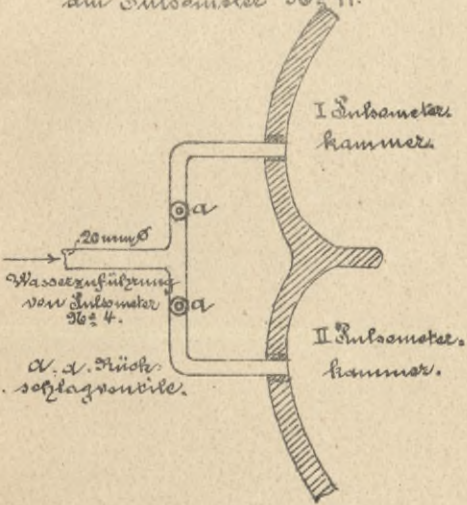 am Pulsometer No 4.
I Pulsometer-
kammer.
a
20 mm Ø
Wasserzuführung
von Pulsometer
No 4.
a
II Pulsometer-
kammer.
a. a. Rück-
schlagventile.